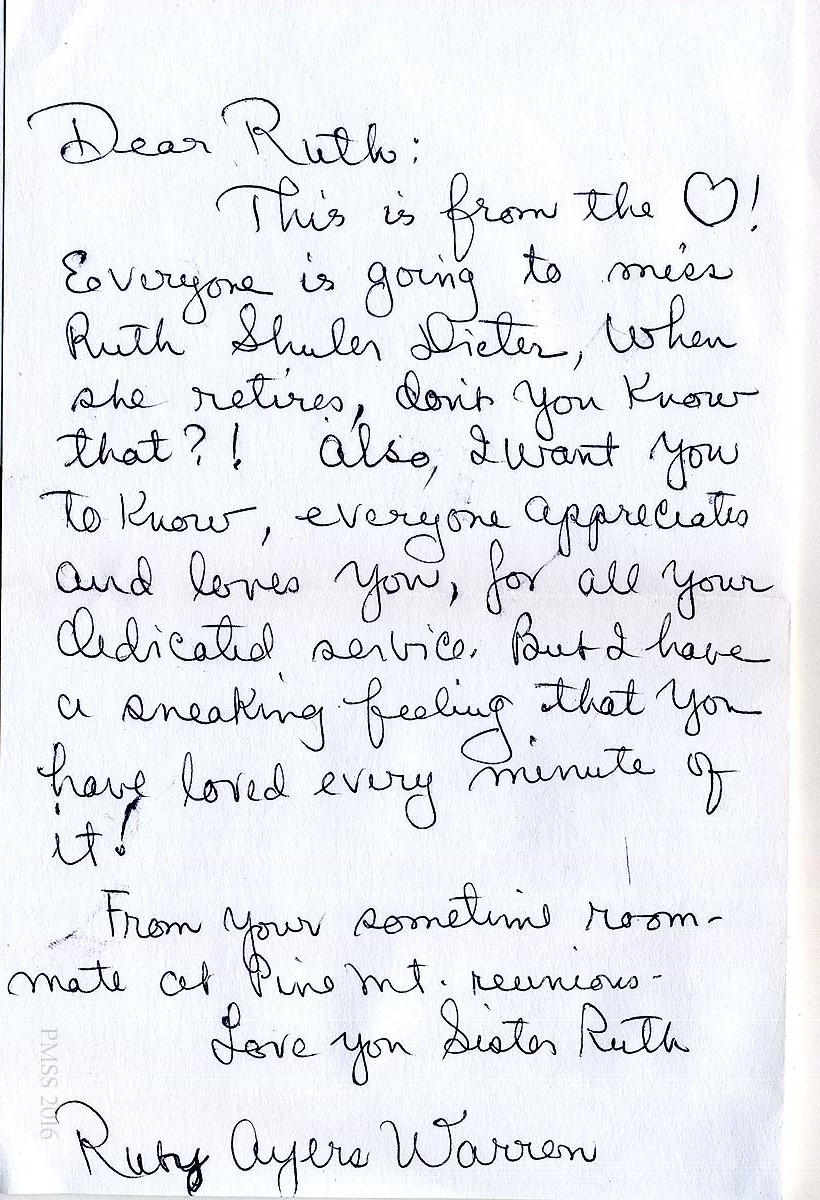 Dear Ruth:
This is from the ♡!
Everyone is going to miss
Ruth Shuler Dieter, when
she retires, don't you know
that?! Also, I want you
to know, everyone appreciates
and loves you, for all your
dedicated service. But I have
a sneaking feeling that you
have loved every minute of
it!
From your sometime room-
mate at Pine Mt. reunions-
Love you Sister Ruth
Ruby Ayers Warren
PMSS 2016